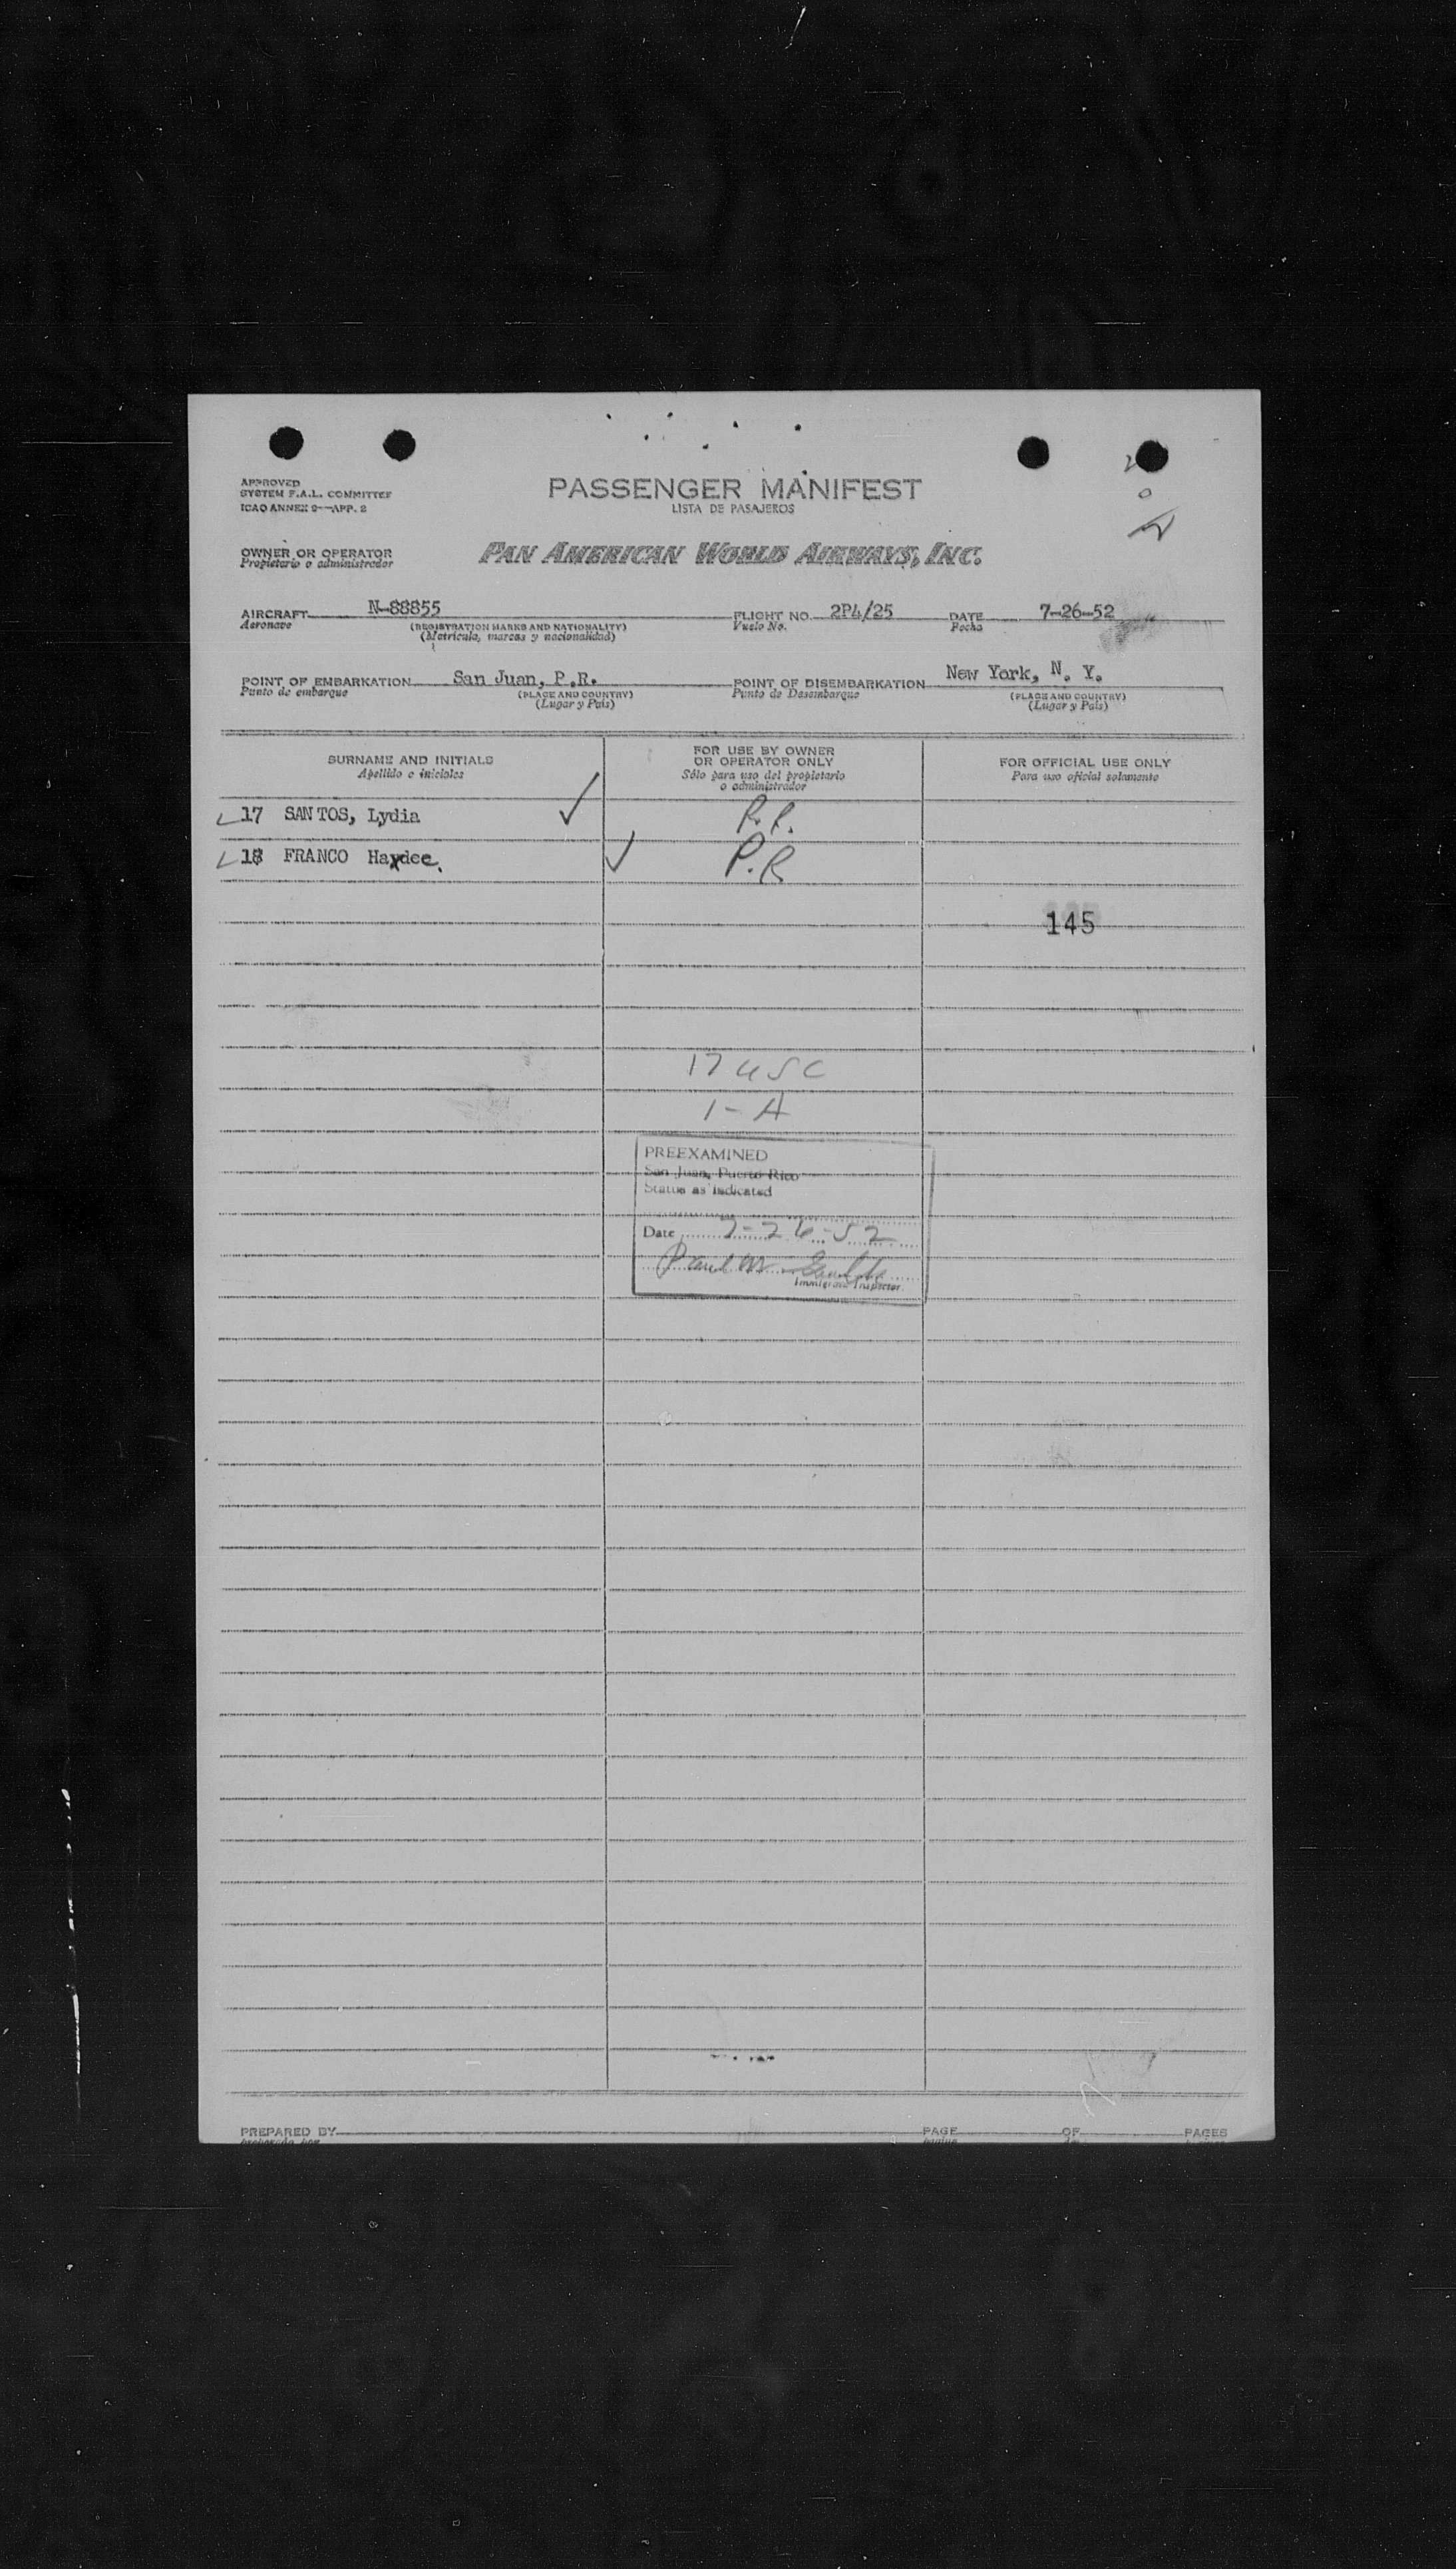 APPROVED
SYSTEM F.A.L. COMMITTEE
ICAO ANNEX 9—APP. 2
PASSENGER MANIFEST
LISTA DE PASAJEROS
OWNER OR OPERATOR
Propietario o administrador
PAN AMERICAN WORLD AIRWAYS, INC.
AIRCRAFT N-88855 FLIGHT NO. 2P4/25 DATE 7-26-52
Aeronave (REGISTRATION MARKS AND NATIONALITY) Vuelo No. Fecha
(Matrícula, marcas y nacionalidad)
POINT OF EMBARKATION San Juan, P.R. POINT OF DISEMBARKATION New York, N. Y.
Punto de embarque (PLACE AND COUNTRY) Punto de Desembarque (PLACE AND COUNTRY)
(Lugar y País) (Lugar y País)
SURNAME AND INITIALS
Apellido e iniciales
FOR USE BY OWNER
OR OPERATOR ONLY
Sólo para uso del propietario
o administrador
FOR OFFICIAL USE ONLY
Para uso oficial solamente
17 SANTOS, Lydia P.R.
18 FRANCO Haydee P.R
145
17 USC
1-A
PREEXAMINED
San Juan, Puerto Rico
Status as indicated
Date 7-26-52
Paul M
Immigrant Inspector
PREPARED BY PAGE OF PAGES